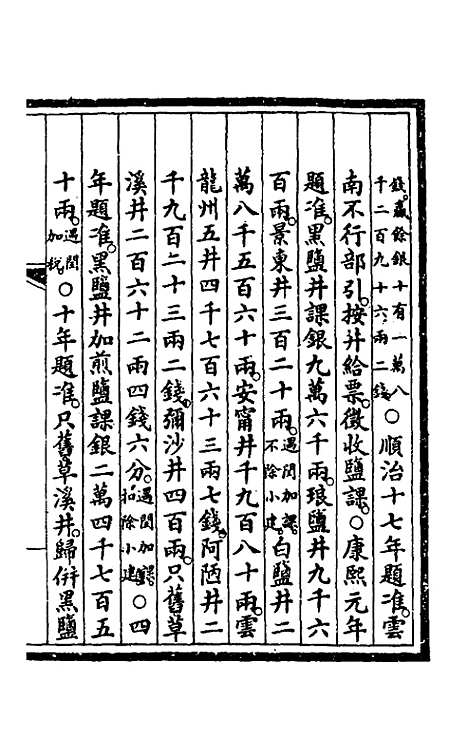 錢。贏餘銀十有一萬八千二百九十六兩二錢。○順治十七年題准。雲
南不行部引。按井給票。徵收鹽課。○康熙元年
題准。黑鹽井課銀九萬六千兩。琅鹽井九千六
百兩。景東井三百二十兩。遇閏加課。不除小建。白鹽井二
萬八千五百六十兩。安甯井千九百八十兩。雲
龍州五井四千七百六十三兩七錢。阿陋井二
千九百二十三兩二錢。彌沙井四百兩。只舊草
溪井二百六十二兩四錢六分。遇閏加課。扣除小建。○四
年題准。黑鹽井加煎鹽課銀二萬四千七百五
十兩。遇閏加稅。○十年題准。只舊草溪井。歸併黑鹽